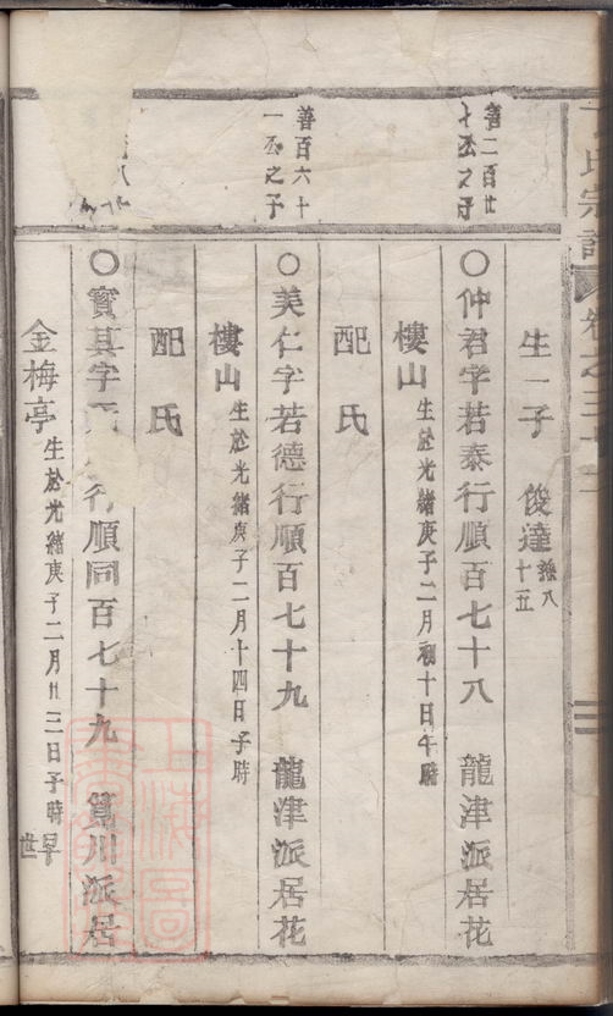 氏宗譜 卷之三十
生一子 俊達 孫八十五
善二百廿七丞之子
〇仲君字若泰行順百七十八 龍津派居花
樓山 生於光緒庚子二月初十日午時
配氏
善百六十一丞之子
〇美仁字若德行順百七十九 龍津派居花
樓山 生於光緒庚子二月十四日子時
配氏
〇寶其字 行順同百七十九 筧川派居
金梅亭 生於光緒庚子二月廿三日子時 早世
上海圖書館藏